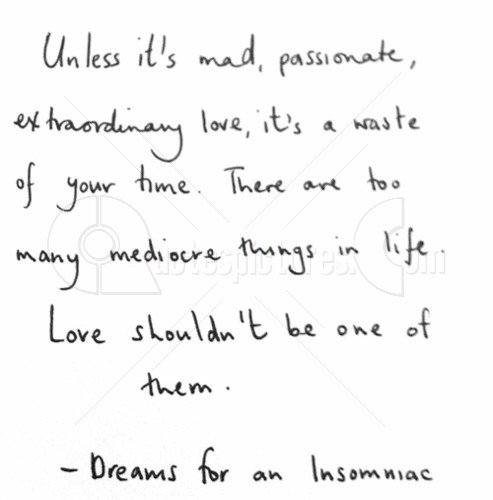 Unless it's mad, passionate,
extraordinary love, it's a waste
of your time. There are too
many mediocre things in life.
quotespictures.com
Love shouldn't be one of
them.
- Dreams for an Insomniac